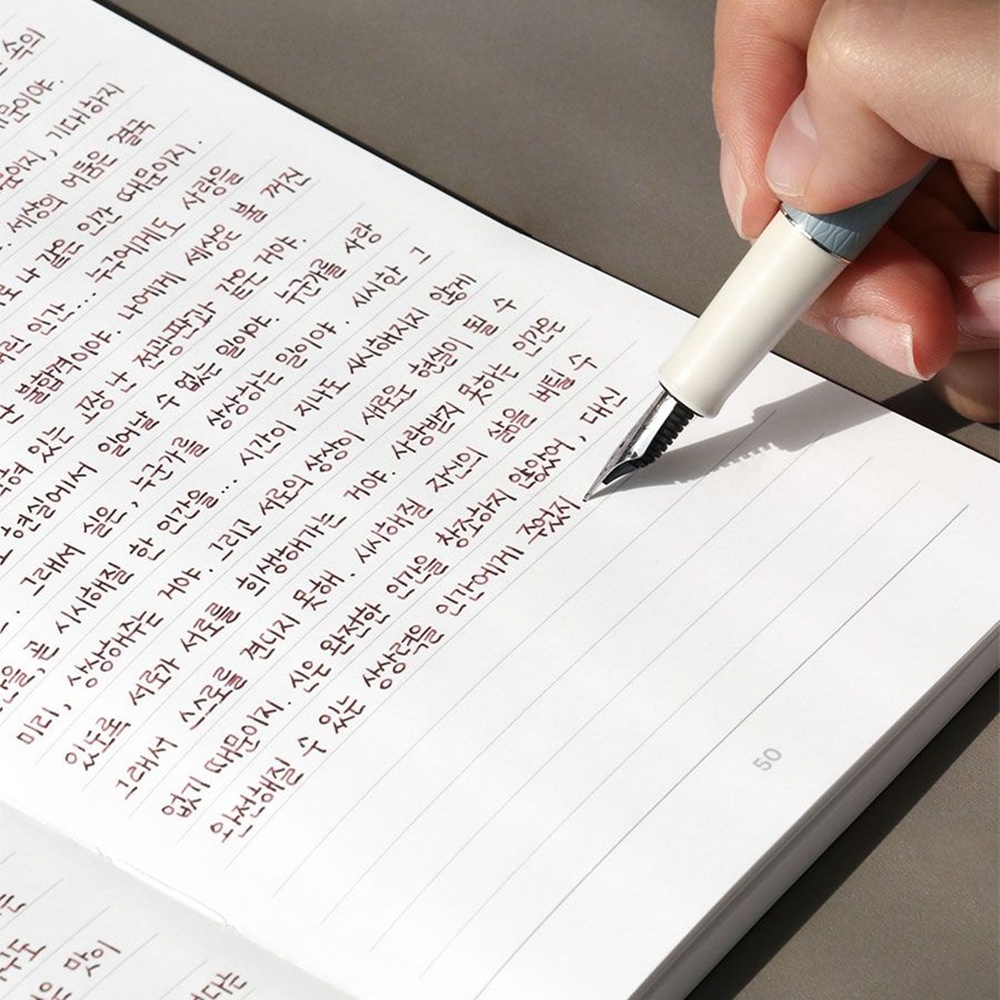 속의
문이야.
문이지, 기대하지
. 세상의 어둠은 결국
나 같은 인간 때문이지.
인간... 누구에게도 사랑을
불합격이야. 나에게 세상은 불 꺼진
있는 고장 나 전광판과 같은 거야.
현실에서 일어날 수 없는 일이야. 누군가를 사랑
. 그래서 싶은, 누군가를 상상하는 일이야. 시시한 그
곧 시시해질 한 인간을... 시간이 지나도 시시해지지 않게
미리, 상상해주는 거야. 그리고 서로의 상상이 새로운 현실이 될 수
있도록 서로가 서로를 희생해가는 거야. 사랑받지 못하는 인간은
그래서 스스로를 견디지 못해. 시시해질 자신의 삶을 버틸 수
없기 때문이지. 신은 완전한 인간을 창조하지 않았어, 대신
완전해질 수 있는 상상력을 인간에게 주었지
50
는
은 맛이
다는